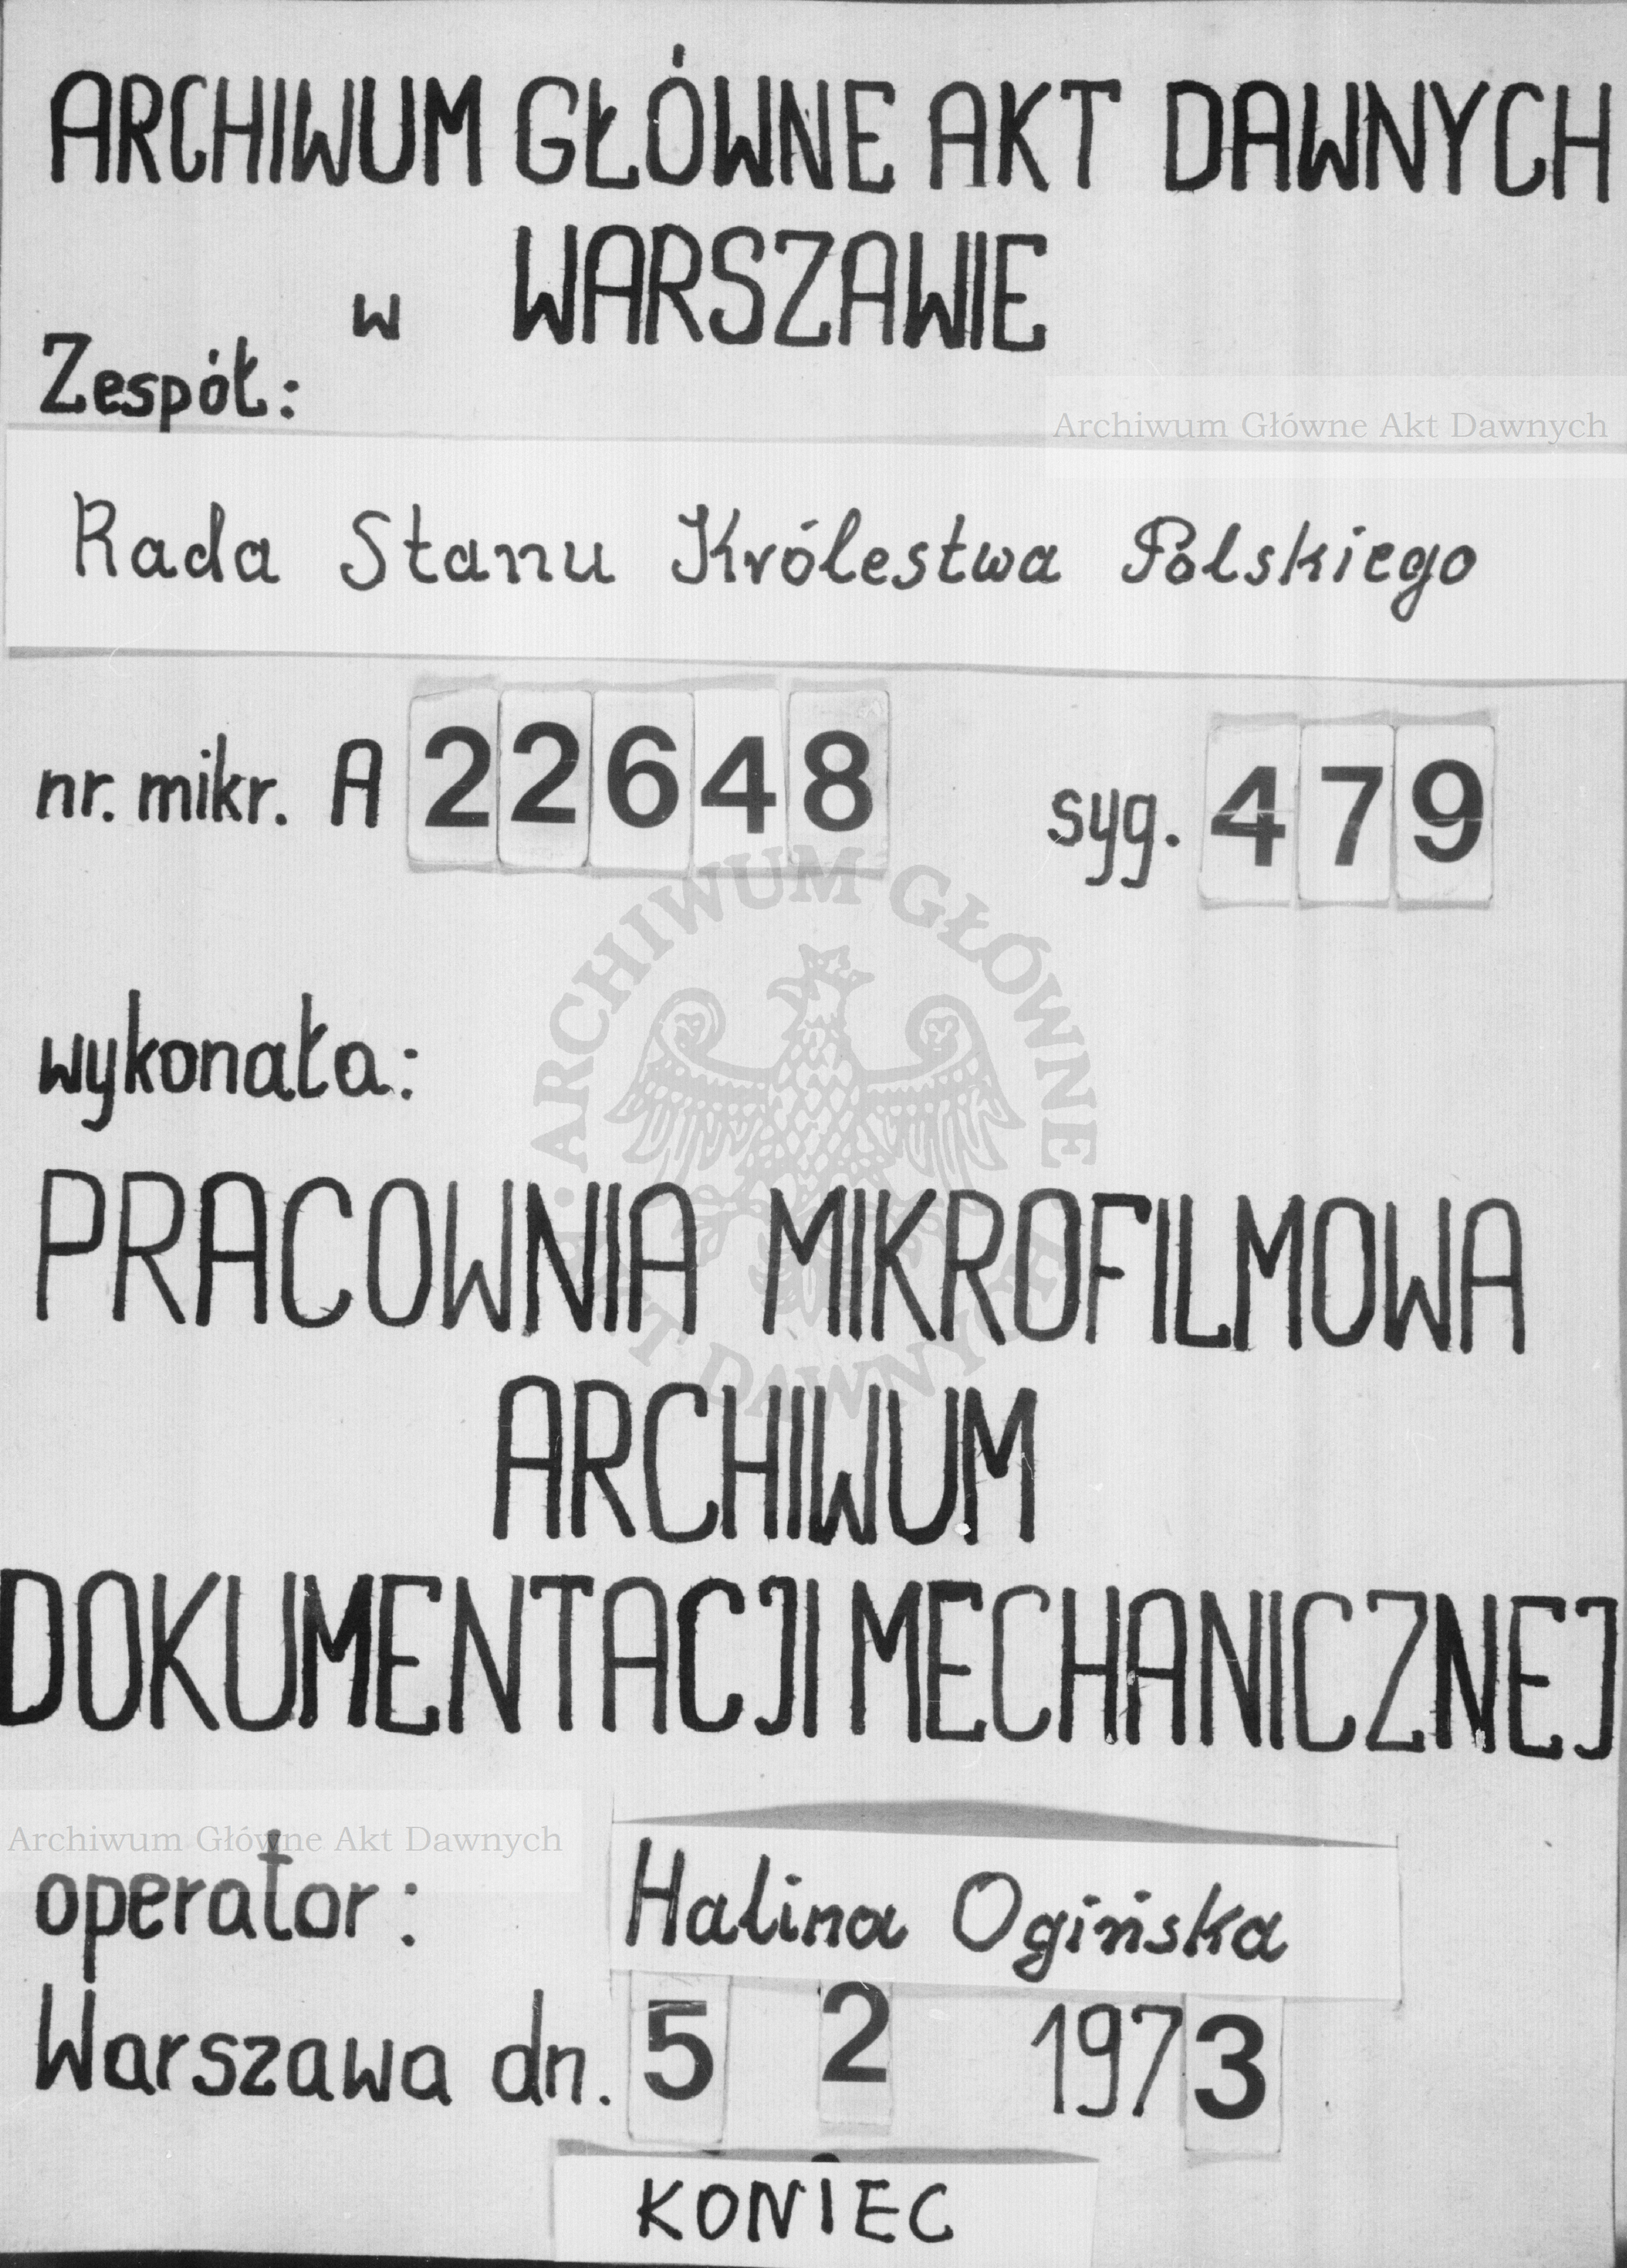 ARCHIWUM GŁÓWNE AKT DAWNYCH
w WARSZAWIE
Zespół:
Archiwum Główne Akt Dawnych
Rada Stanu Królestwa Polskiego
nr. mikr. A 22648 syg. 479
ARCHIWUM GŁÓWNE AKT DAWNYCH
wykonała:
PRACOWNIA MIKROFILMOWA
ARCHIWUM
DOKUMENTACJI MECHANICZNEJ
Archiwum Główne Akt Dawnych
operator: Halina Ogińska
Warszawa dn. 5 2 1973
KONIEC